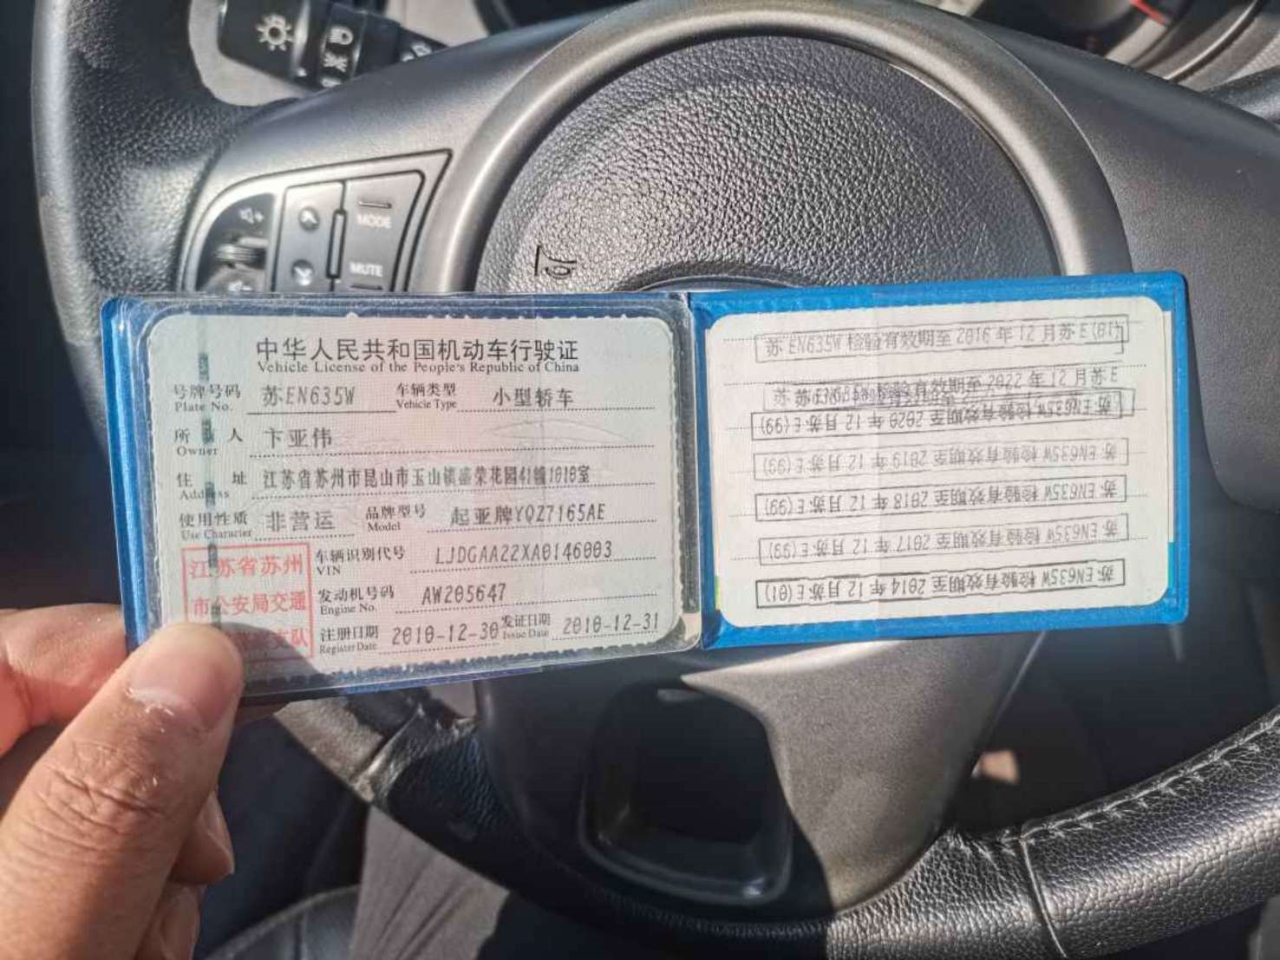 MODE
MUTE
中华人民共和国机动车行驶证
Vehicle License of the People's Republic of China
号牌号码 苏EN635W 车辆类型 小型轿车
Plate No. Vehicle Type
所有人 卞亚伟
Owner
住址 江苏省苏州市昆山市玉山镇盛荣花园41幢1010室
Address
使用性质 非营运 品牌型号 起亚牌YQZ7165AE
Use Character Model
江苏省苏州
市公安局交通
支队
车辆识别代号 LJDGAA22XA0146003
VIN
发动机号码 AW205647
Engine No.
注册日期 2010-12-30 发证日期 2010-12-31
Register Date Issue Date
苏EN635W 检验有效期至 2016 年 12 月苏 E(01)
检验有效期至 2022 年 12 月苏 E
苏EN635W 检验有效期至 2020 年 12 月苏 E(99)
苏EN635W 检验有效期至 2019 年 12 月苏 E(99)
苏EN635W 检验有效期至 2018 年 12 月苏 E(99)
苏EN635W 检验有效期至 2017 年 12 月苏 E(99)
苏EN635W 检验有效期至 2014 年 12 月苏 E(01)